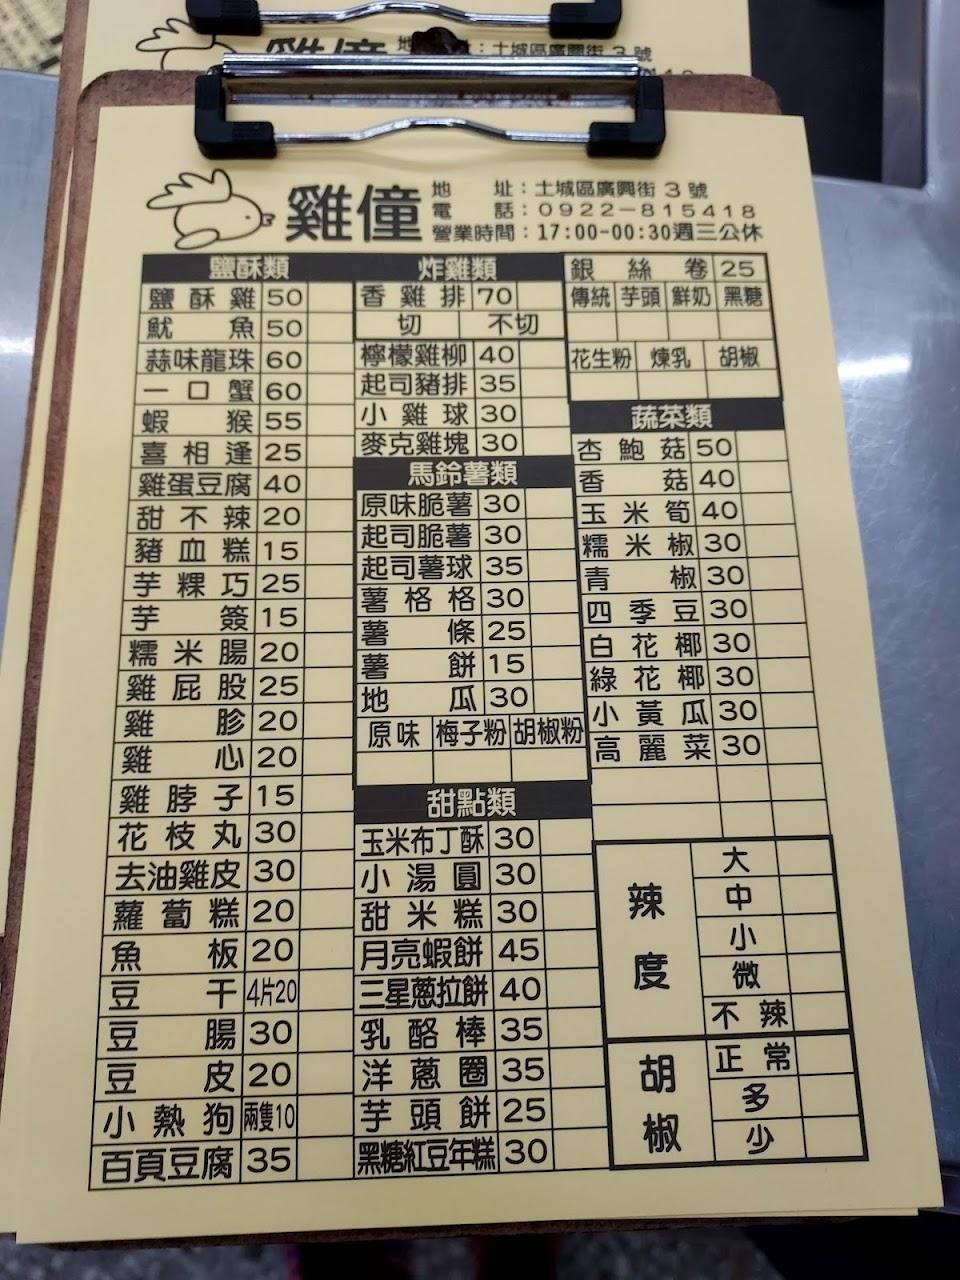 地址：土城區廣興街３號
雞僮
地址：土城區廣興街 3 號
電話：0922-815418
營業時間：17:00-00:30週三公休
鹽酥類
鹽酥雞 50
魷魚 50
蒜味龍珠 60
一口蟹 60
蝦猴 55
喜相逢 25
雞蛋豆腐 40
甜不辣 20
豬血糕 15
芋粿巧 25
芋簽 15
糯米腸 20
雞屁股 25
雞胗 20
雞心 20
雞脖子 15
花枝丸 30
去油雞皮 30
蘿蔔糕 20
魚板 20
豆干 4片20
豆腸 30
豆皮 20
小熱狗 兩隻10
百頁豆腐 35
炸雞類
香雞排 70
切 不切
檸檬雞柳 40
起司豬排 35
小雞球 30
麥克雞塊 30
馬鈴薯類
原味脆薯 30
起司脆薯 30
起司薯球 35
薯格格 30
薯條 25
薯餅 15
地瓜 30
原味 梅子粉 胡椒粉
甜點類
玉米布丁酥 30
小湯圓 30
甜米糕 30
月亮蝦餅 45
三星蔥拉餅 40
乳酪棒 35
洋蔥圈 35
芋頭餅 25
黑糖紅豆年糕 30
銀絲卷 25
傳統 芋頭 鮮奶 黑糖
花生粉 煉乳 胡椒
蔬菜類
杏鮑菇 50
香菇 40
玉米筍 40
糯米椒 30
青椒 30
四季豆 30
白花椰 30
綠花椰 30
小黃瓜 30
高麗菜 30
辣度
大
中
小
微
不辣
胡椒
正常
多
少